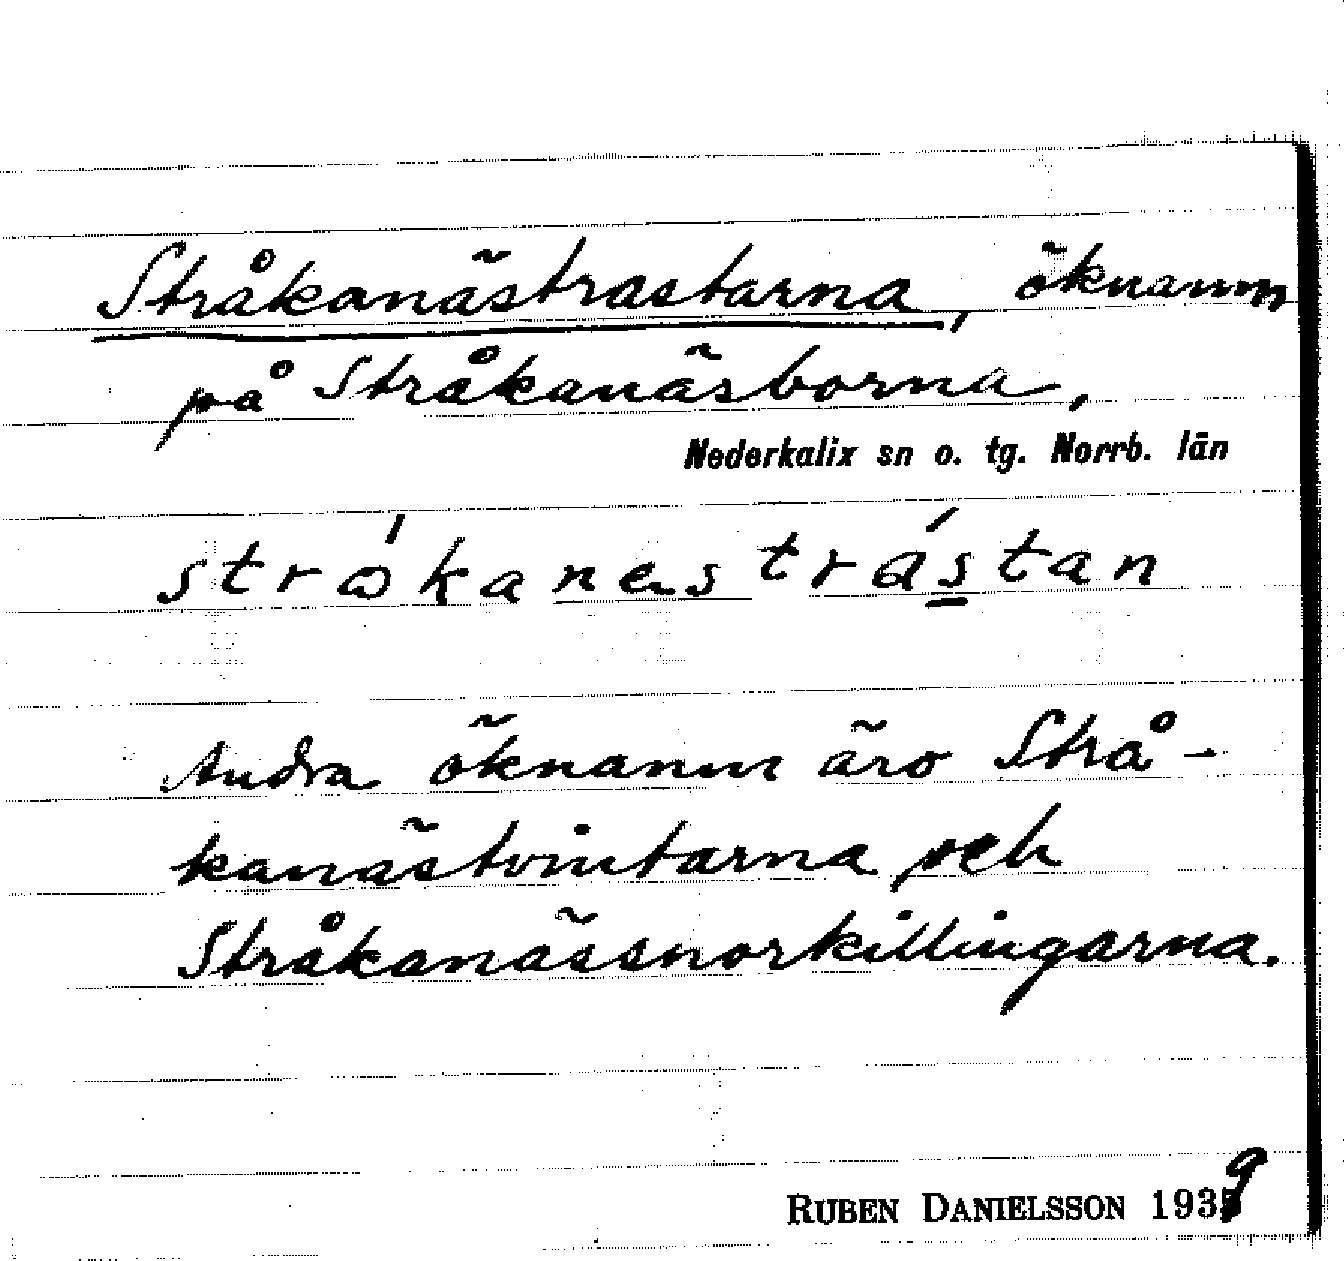 Stråkanästrastarna, öknamn
på Stråkanäsborna,
Nederkalix sn o. tg. Norrb. län
strǻkanestrástan
Andra öknamn äro Strå-
kanästvintarna och
Stråkanässnorkillingarna.
RUBEN DANIELSSON 1939